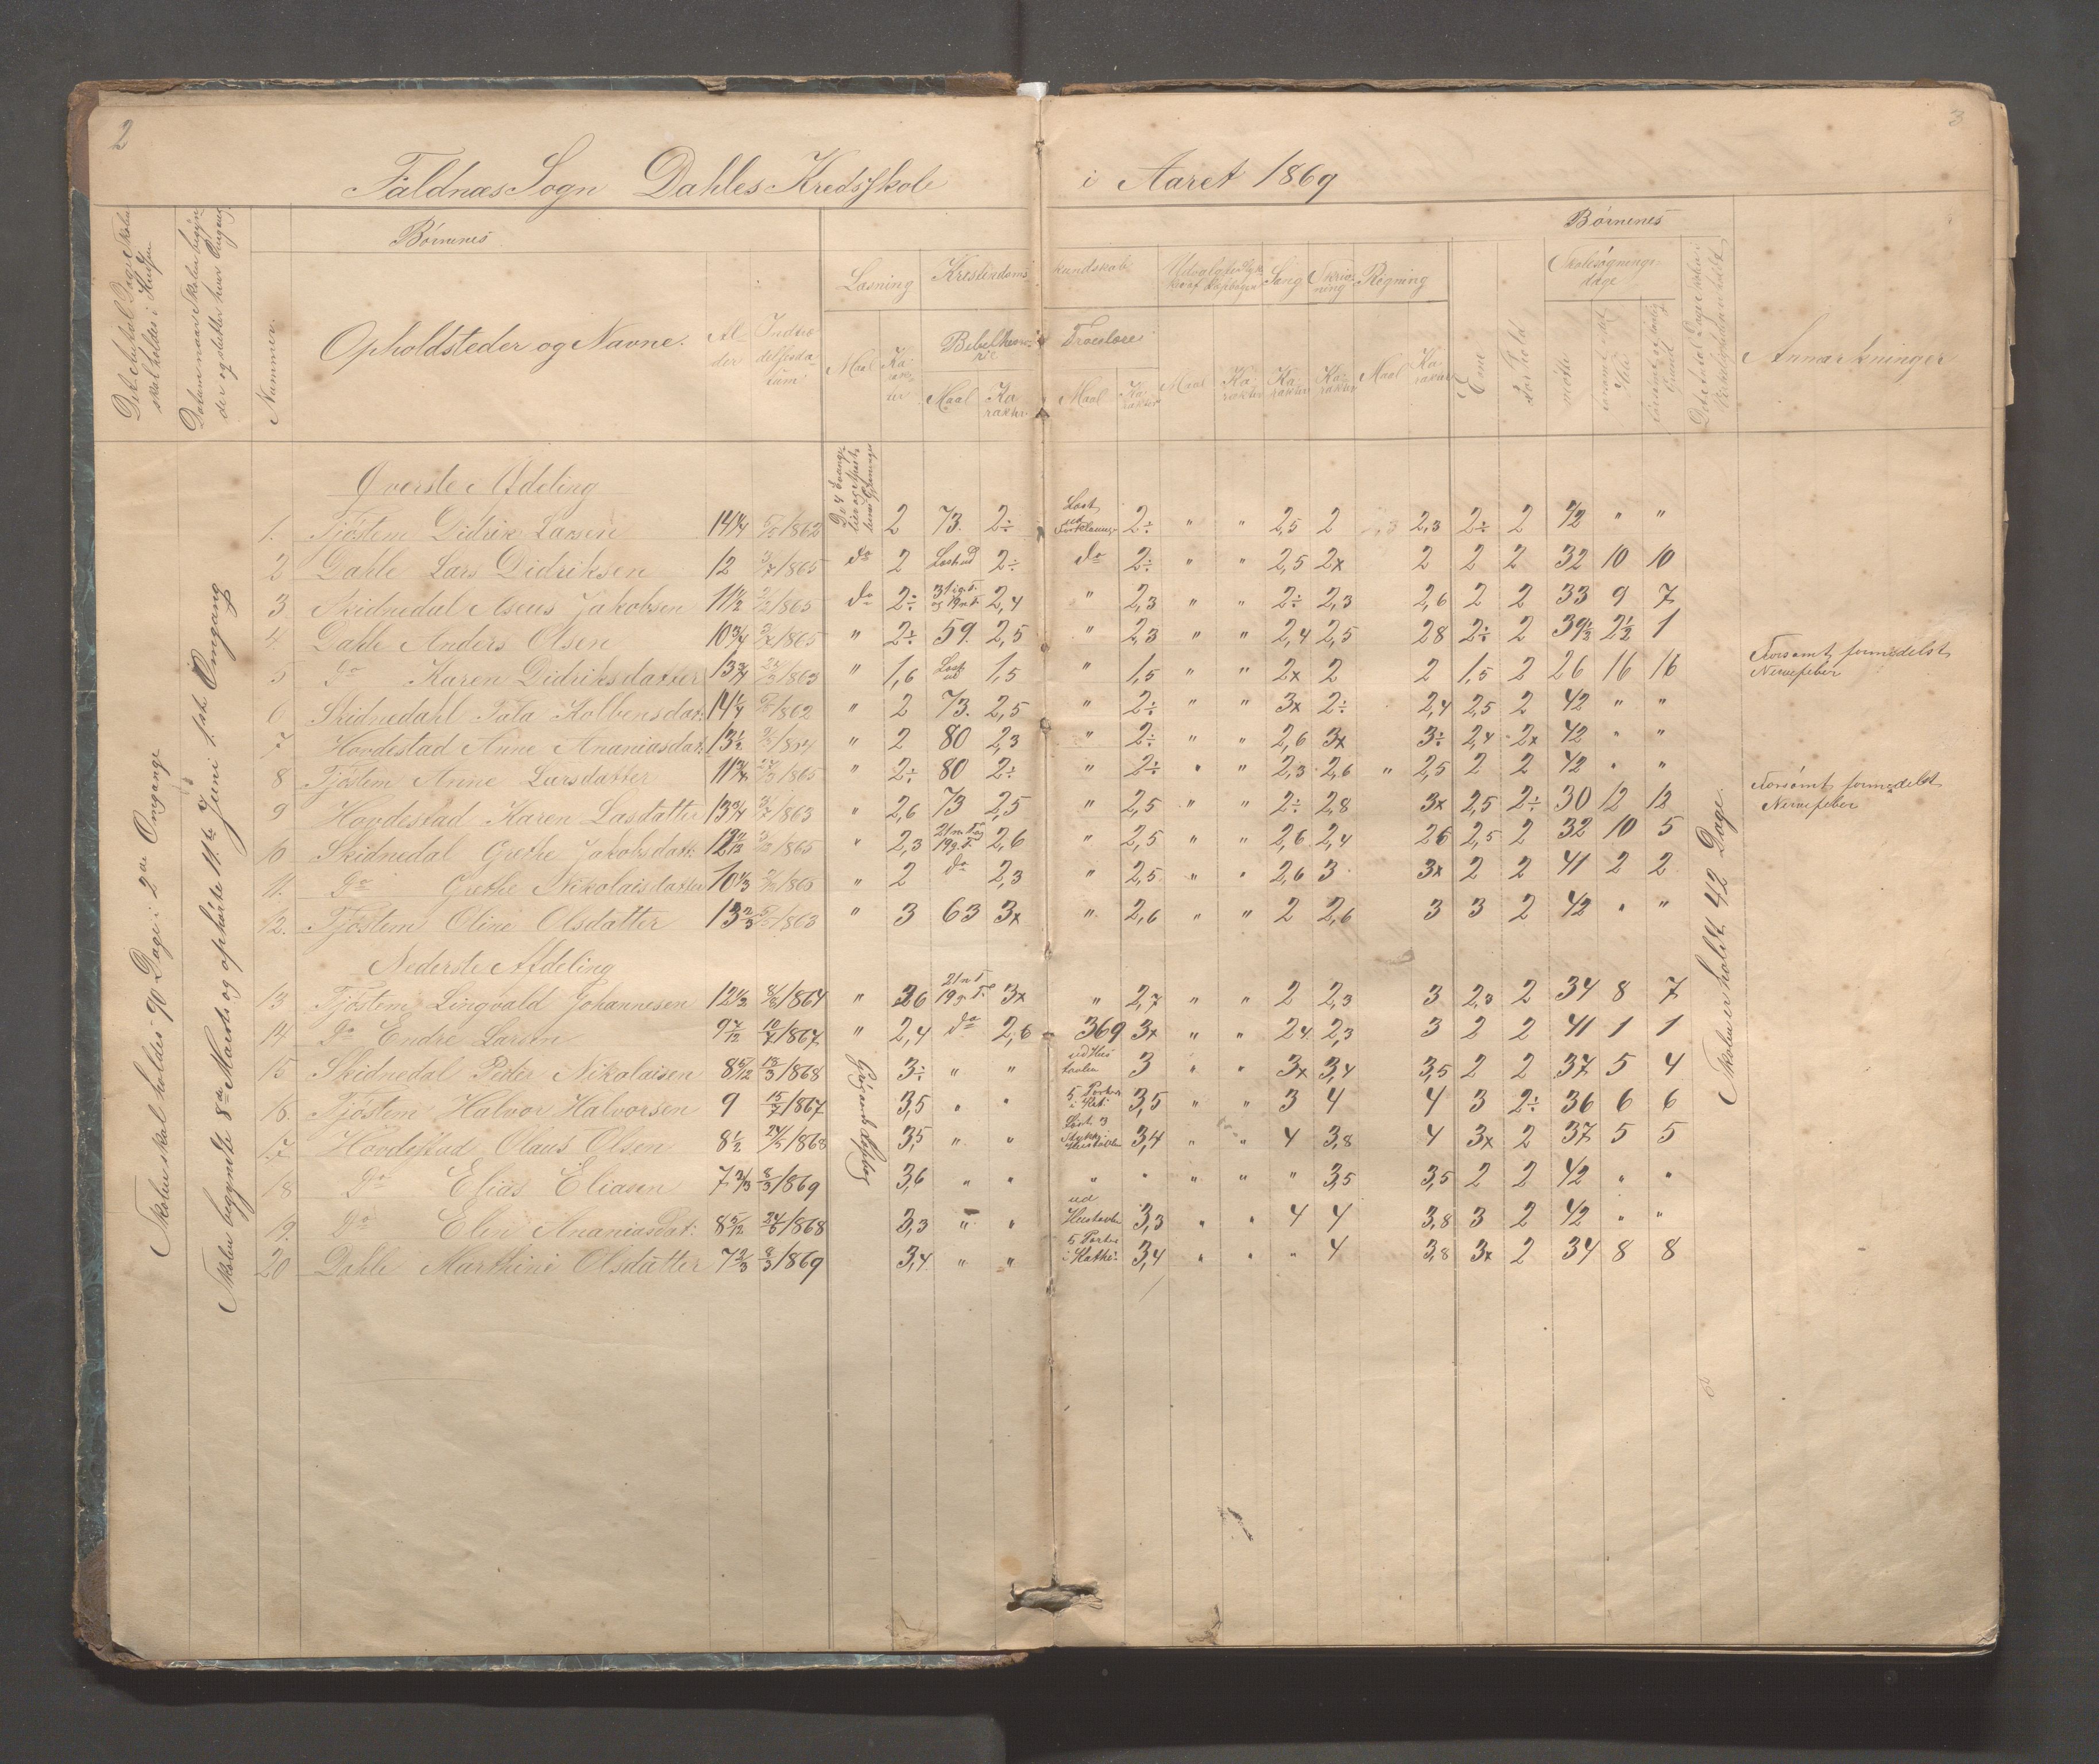 2
3
Faldnæs Sogn Dahles Kredsskole i Aaret 1869
Børnenes
Børnenes
Det Antal Dage Skolen skal holdes i Kredsen
Datum naar Skolen begynder og slutter hver Omgang
Nummer.
Opholdsteder og Navne.
Alder
Indtrædelsesdatum
Læsning
Kristendoms kundskab
Sang
Skrivning
Regning
Maal
Karakter
Bibelhistorie
Troeslære
Maal
Karakter
Maal
Karakter
Maal
Karakter
Karakter
Karakter
Maal
Karakter
Evne
Forhold
Skolesøgningsdage
mødte
forsømt i det Hele
Det Antal Dage Skolen i Virkeligheden er holdt
Anmærkninger
Skolen skal holdes 90 Dage i 2de Omgange
Skolen begyndte 8de Marts og ophørte 11te Juni 1ste Omgang
Øverste Afdeling
1. Tjøstem Didrik Larsen 14 1/4 /1862 2 73. 2÷ Læst ud Forklaring 2÷ " " 2,5 2 2,3 2÷ 2 42 " "
2 Dahle Lars Didriksen 12 /1865 do 2 Læst ud 2÷ do 2÷ " " 2,5 2x 2 2 2 32 10 10
3. Skidnedal Aseus Jakobsen 11 1/2 /1865 do 2÷ 2,4 " 2,3 " " 2÷ 2,3 2,6 2 2 33 9 7
4. Dahle Anders Olsen 10 3/4 /1865 " 2÷ 59. 2,5 " 2,3 " " 2,4 2,5 28 2÷ 2 39 1/2 2 1/2 1
5 Do Karen Didriksdatter 13 3/4 /1863 " 1,6 Læst ud 1,5 " 1,5 " " 2x 2 2 1,5 2 26 16 16 Forsømt formedelst Nervefeber
6 Skidnedahl Tala Kolbensdat: 14 1/4 /1862 " 2 73. 2,5 " 2÷ " " 3x 2÷ 2,4 2,5 2 42 " "
7 Hovdestad Anne Ananiasdat: 13 1/2 /1864 " 2 80 2,3 " 2÷ " " 2,6 3x 3÷ 2,4 2x 42 " "
8 Tjøstem Anne Larsdatter 11 3/4 /1865 " 2÷ 80 2÷ " 2÷ " " 2,3 2,6 " 2,5 2 2 42 " "
9 Hovdestad Karen Lasdatter 13 3/4 /1863 " 2,6 73 2,5 " 2,5 " " 2÷ 2,8 3x 2,5 2÷ 30 12 12 Forsømt formedelst Nervefeber
10 Skidnedal Grethe Jakobsdatt: /1865 " 2,3 2,6 " 2,5 " " 2,6 2,4 26 2,5 2 32 10 5
11. Do Grethe Nikolaisdatter 10 1/3 /1865 " 2 do 2,3 " 2,5 " " 2,6 3 3x 2 2 41 2 2
12. Tjøstem Oline Olsdatter 13 2/3 /1863 " 3 63 3x " 2,6 " " 2 2,6 3 3 2 42 " "
Nederste Afdeling
13 Tjøstem Lingvald Johannesen 12 1/2 /1864 " 36 3x " 2,7 " " 2 2,3 3 2,3 2 34 8 7
14 Do Endre Larsen 9 7/12 10/7/1867 " 2,4 do 2,6 369 3x " " 24 2,3 3 2 2 41 1 1
15 Skidnedal Peder Nikolaisen 8 5/12 13/3/1868 3÷ " " 3 " " 3x 3,4 3,5 2 2 37 5 4
16. Tjøstem Halvor Halvorsen 9 15/7/1867 3,5 " " 5 Parter i Kat: 3,5 " " 3 4 4 3 2÷ 36 6 6
17 Hovdestad Olaus Olsen 8 1/2 /1868 3,5 " " 3,4 " " 4 3,8 4 3x 2 37 5 5
18 Do Elias Eliasen 7 2/3 8/3/1869 3,6 " " " " " " " 3,5 3,5 2 2 42 " "
19. Do Elen AnaniasDat: 8 5/12 /1868 3,3 " " 3,3 " " 4 4 3,8 3 2 42 " "
20 Dahle Marthine Olsdatter 7 2/3 8/3/1869 3,4 " " 5 Parter i Kathe: 3,4 " " " 4 3,8 3x 2 34 8 8
Skolen er holdt 42 Dage.